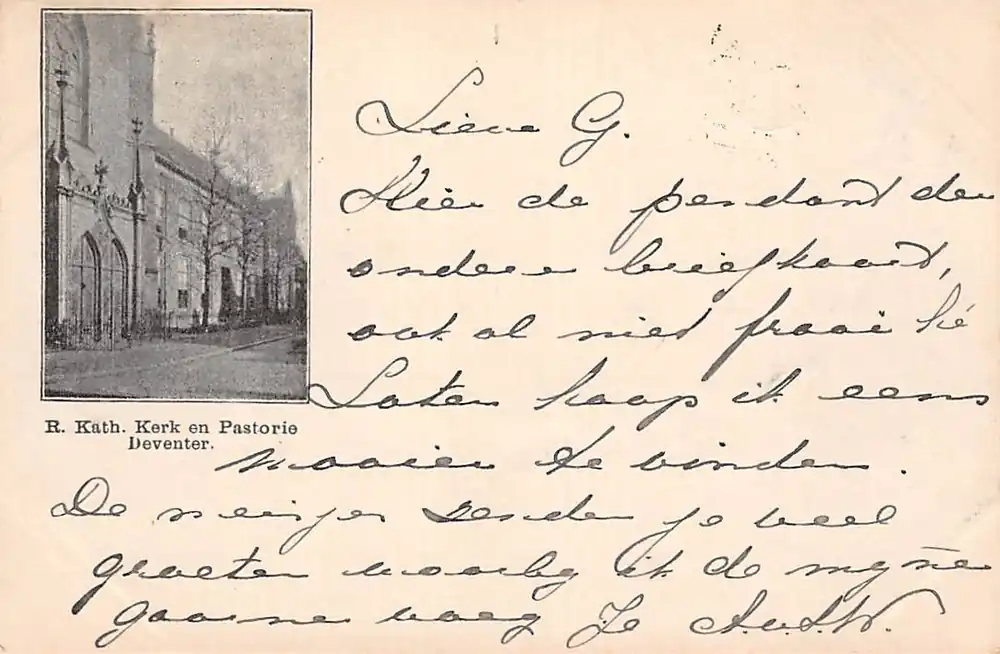 Lieve G.
Hier de pendant der
andere briefkaart,
ook al niet fraai hè
Later hoop ik eens
mooier te vinden.
R. Kath. Kerk en Pastorie
Deventer.
De meisjes zenden je veel
groeten waarbij ik de mijne
gaarne voeg Je A.v.d.W.